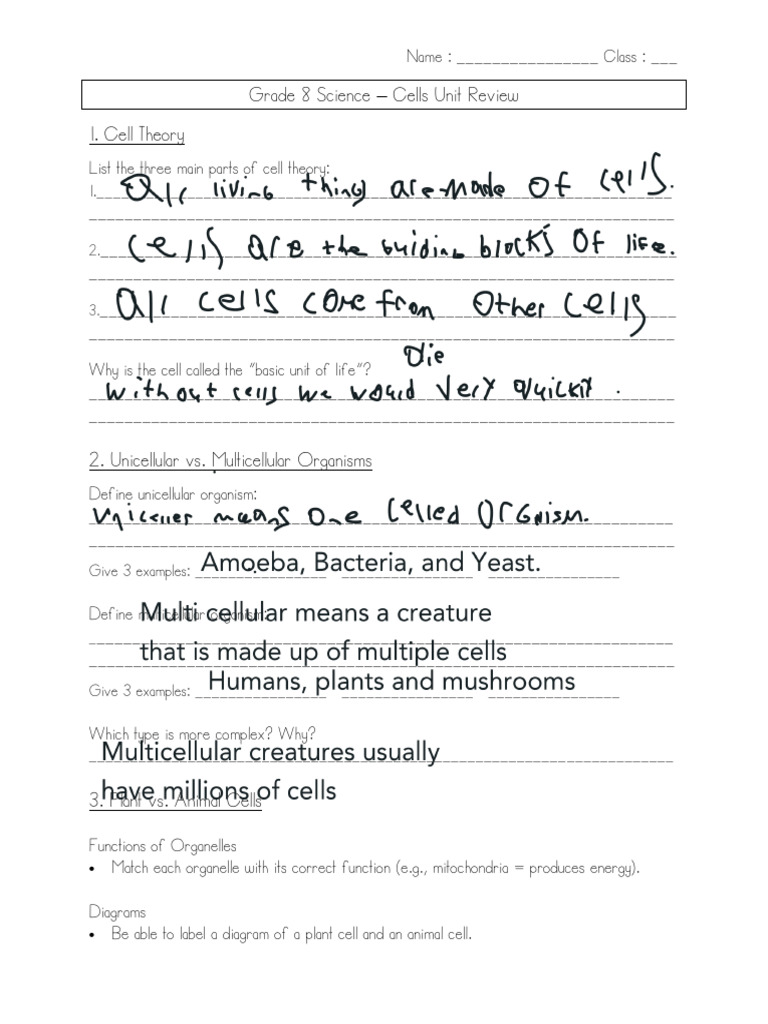 Name : ________________ Class : ___
Grade 8 Science – Cells Unit Review
1. Cell Theory
List the three main parts of cell theory:
1. All living things are made of cells.
2. Cells are the building blocks of life.
3. All cells come from other cells
Why is the cell called the "basic unit of life"?
die
without cells we would very quickly.
2. Unicellular vs. Multicellular Organisms
Define unicellular organism:
means one celled organism.
Give 3 examples: Amoeba, Bacteria, and Yeast.
Define multicellular organism:
Multi cellular means a creature
that is made up of multiple cells
Give 3 examples: Humans, plants and mushrooms
Which type is more complex? Why?
Multicellular creatures usually
have millions of cells
3. Plant vs. Animal Cells
Functions of Organelles
• Match each organelle with its correct function (e.g., mitochondria = produces energy).
Diagrams
• Be able to label a diagram of a plant cell and an animal cell.